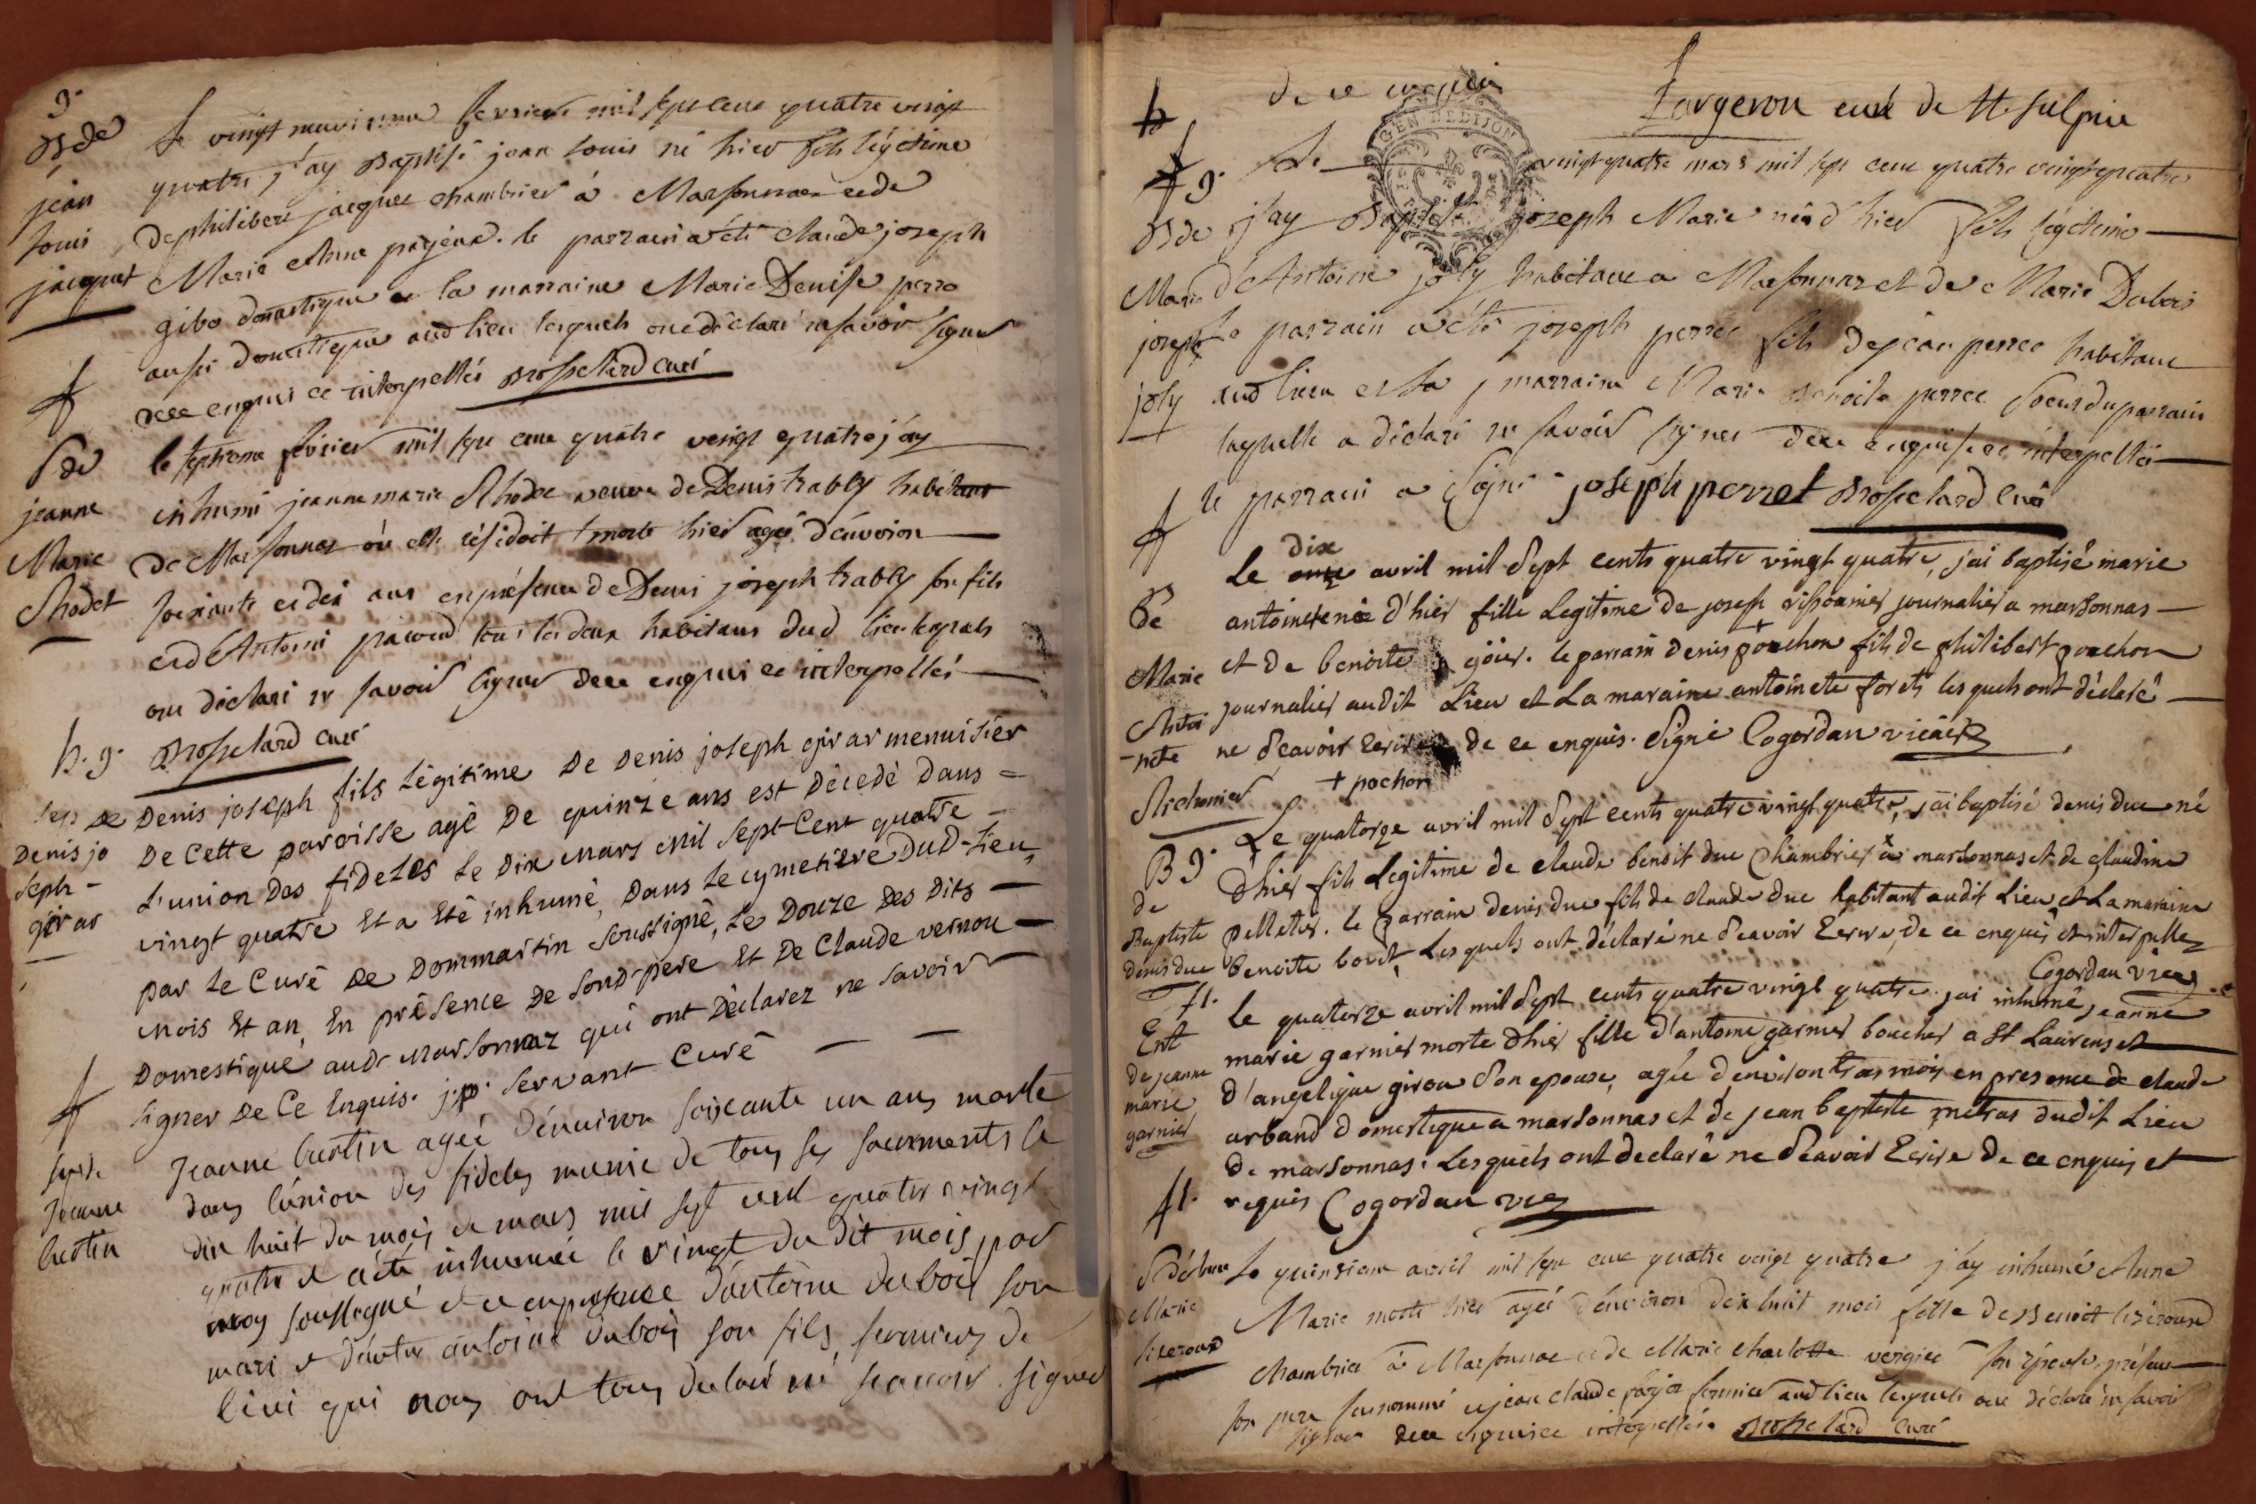 g.
B de
jean
louis
jacquet
le vingt neuvieme fevrier mil sept cent quatre vingt
quatre, j'ay Baptisé jean louis né hier fils légitime
de philibert jacquet chambrier à Marsonnas et de
Marie Anne pagend. le parrain a été claude joseph
gibo domestique et la marraine Marie Denise perro
aussi domestique aud lieu lesquels ont déclaré ne savoir signer
de ce enquis et interpellés Brosselard curé
S de
jeanne
Marie
Rhodet
le septieme février mil sept cent quatre vingt quatre j'ay
inhumé jeanne marie Rhodet veuve de Denis trably habitant
de Marsonnas où elle résidoit morte hier agée d'environ
soixante et dix ans en présence de Denis joseph trably son fils
et d'Antoine pacoud tous les deux habitans dud lieu lesquels
ont déclaré ne savoir signer de ce enquis et interpellés
h. g. Brosselard curé
Sep de
Denis jo
seph -
girar
Denis joseph fils Légitime De Denis joseph girar menuisier
De Cette paroisse agé De quinze ans est Décedé Dans =
L'union Des fideles Le Dix Mars Mil Sept Cent quatre -
vingt quatre Et a Eté inhumé, Dans Le cymetière Dud-Lieu,
par Le Curé De Dommartin Soussigné, Le Douze Des Dits -
Mois Et an, En présence De Sond-pere Et De Claude vernou -
Domestique aude Marsonnaz qui ont Déclarez ne savoir -
signer De Ce Enquis. j.p. Servant Curé - -
Sep de
Jeanne
bertin
Jeanne bertin ageé d'énviron soixante un ans morte
dans l'union des fideles munie de tous ses sacrments le
dix huit du mois de mars mil sept cent quatre vingt
quatre et a été inhumée le vingt du dit mois par
moy soussigné et ce en présence d'antoine dubois son
mari et d'autre antoine dubois son fils, fermiers de
lieu qui nous ont tous declaré né scavoir signer
de ce enquis
Largeron curé de St. Sulpice
GEN DE DIJON
g.
B de
Marie
joseph
joly
Le vingt quatre mars mil sept cent quatre vingt quatre
j'ay Baptisé joseph Marie né d'hier fils légitime
d'Antoine joly habitant a Marsonnaz et de Marie Dubois
le parrain a été joseph perret fils de jean perret habitant
aud lieu et la marraine Marie Benoite perret soeur du parrain
laquelle a déclaré ne savoir signer de ce enquise et interpellée
le parrain a signé joseph perret Brosselard Curé
B
de
Marie
Antoi
-nete
Richonier
dix
Le onze avril mil Sept cents quatre vingt quatre, j'ai baptisé marie
antoinete née d'hier fille Legitime de joseph rissonier journalier a marsonnas -
et de benoite goier. le parrain denis pouchon + fils de philibert pouchon
journalier audit Lieu et La maraine antoinete foret lesquels ont déclaré -
ne Sçavoir Ecrire de ce enquis. Signé Cogordan vicaire
+ pochon
B g.
de
Baptiste
denis duc
Le quatorze avril mil Sept cents quatre vingt quatre, j'ai baptisé denis duc né
d'hier fils Legitime de claude benoit duc Chambrier à marsonnas et de claudine
pelletier. le parrain denis duc fils de claude duc habitant audit Lieu et La maraine
benoite boudt, Lesquels ont déclaré ne Sçavoir Ecrire, de ce enquis et interpellez
Cogordan vic.
Ent
de jeanne
marie
garnier
Le quatorze avril mil Sept cents quatre vingt quatre j'ai inhumé, jeanne
marie garnier morte d'hier fille d'antoine garnier boucher a St Laurens et
d'angelique girou Son epouse, agée d'environ trois mois en presence de claude
arband domestique a marsonnas et de jean baptiste metras dudit Lieu
de marsonnas. Lesquels ont declaré ne Sçavoir Ecrire de ce enquis et
requis Cogordan vic
S d'Anne
Marie
liseroux
le quinzieme avril mil sept cent quatre vingt quatre j'ay inhumé Anne
Marie morte hier agée d'environ dix huit mois fille de Benoit liseroux
chambrier à Marsonnas et de Marie Charlotte vergier son épouse présens
son pere susnommé et jean claude farjot fermier aud lieu lesquels ont déclaré ne savoir
signer de ce enquis et interpellés Brosselard Curé